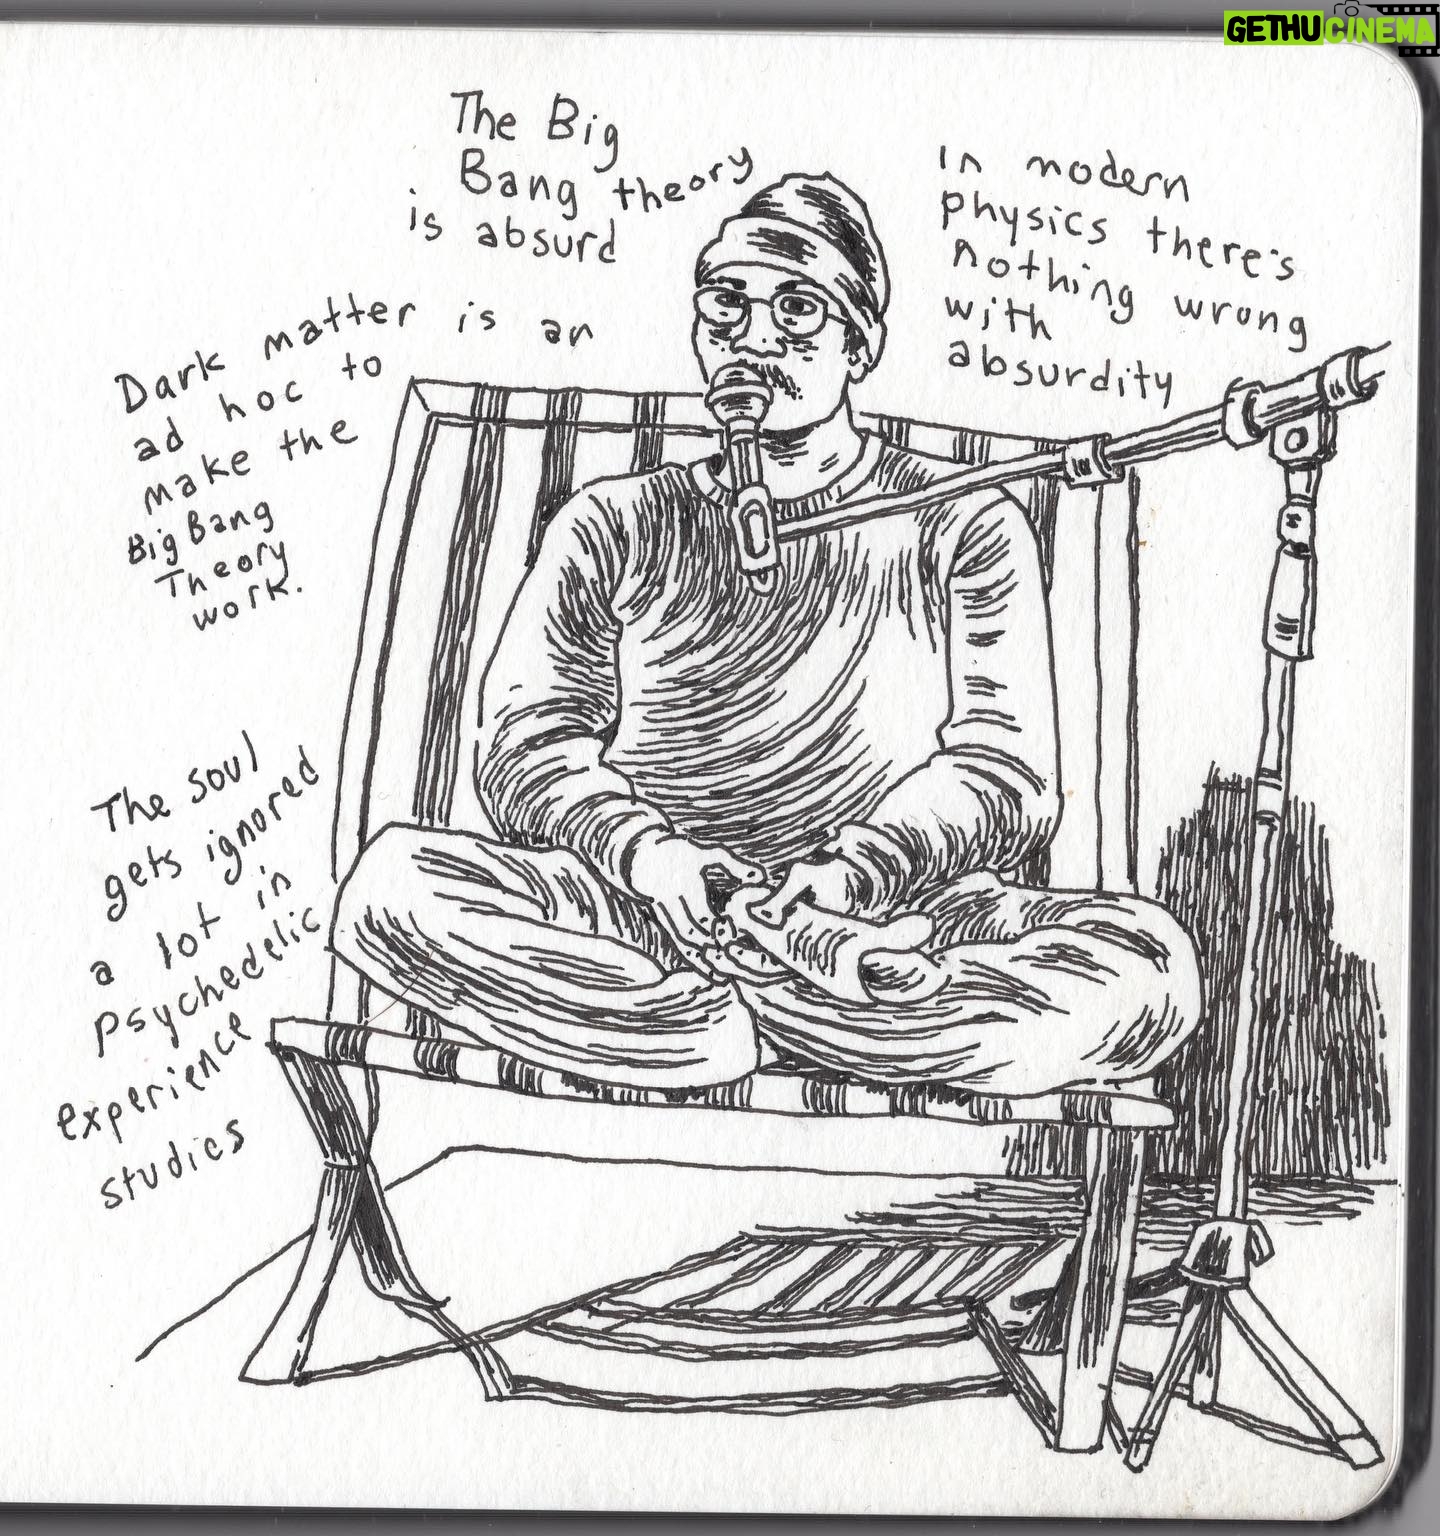 GETHU CINEMA
The Big
Bang theory
is absurd
In modern
physics there's
nothing wrong
with
absurdity
Dark matter is an
ad hoc to
make the
Big Bang
Theory
work.
The soul
gets ignored
a lot in
psychedelic
experience
studies